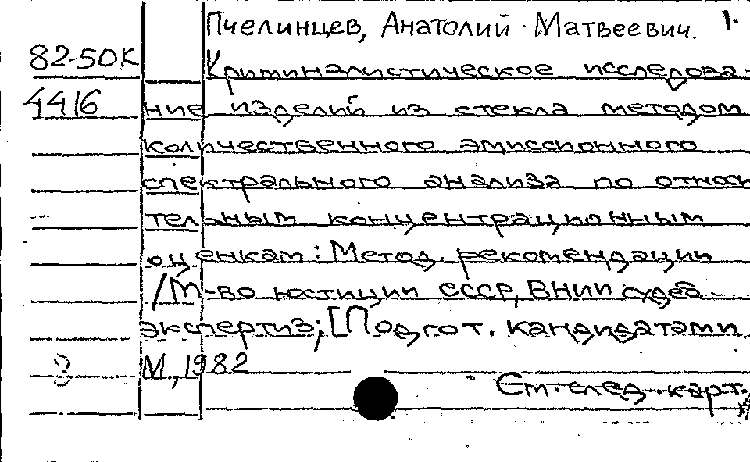 Пчелинцев, Анатолий Матвеевич. 1.
82-50К Криминалистическое исследова-
4416 ние изделий из стекла методом
количественного эмиссионного
спектрального анализа по относи
тельным концентрационным
оценкам: Метод. рекомендации
/М-во юстиции СССР, ВНИИ судеб.
экспертиз; [Подгот. кандидатами
М., 1982
См. след. карт.